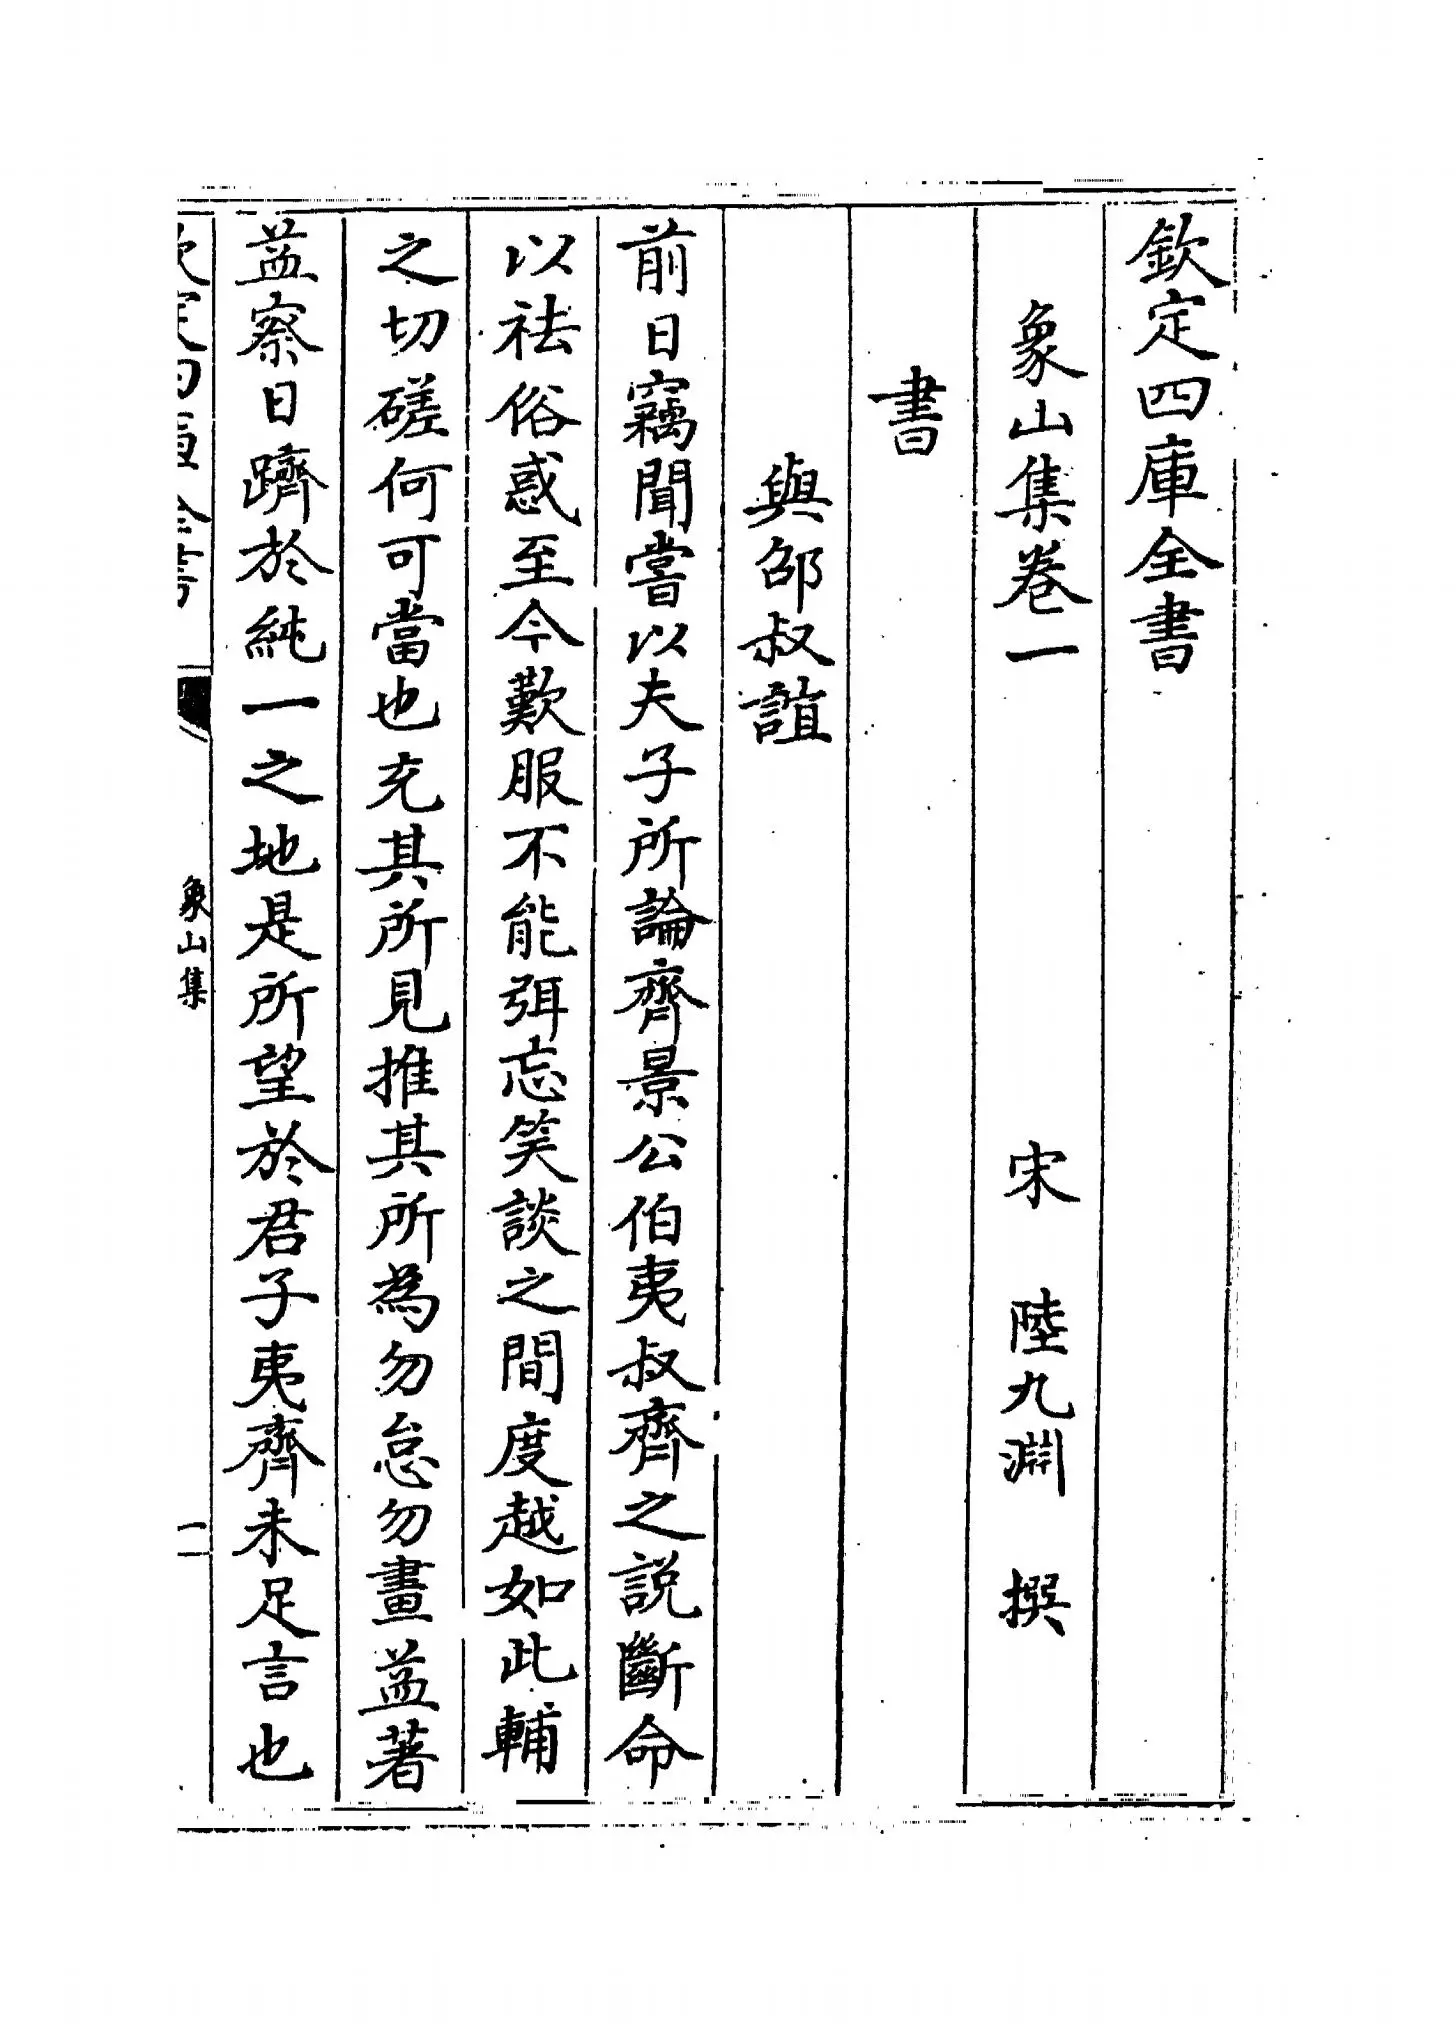 欽定四庫全書
象山集卷一　宋　陸九淵　撰
書
與邵叔誼
前日竊聞嘗以夫子所論齊景公伯夷叔齊之說斷命
以袪俗惑至今歎服不能弭忘笑談之間度越如此輔
之切磋何可當也充其所見推其所為勿怠勿畫益著
益察日躋於純一之地是所望於君子夷齊未足言也
欽定四庫全書
象山集
一